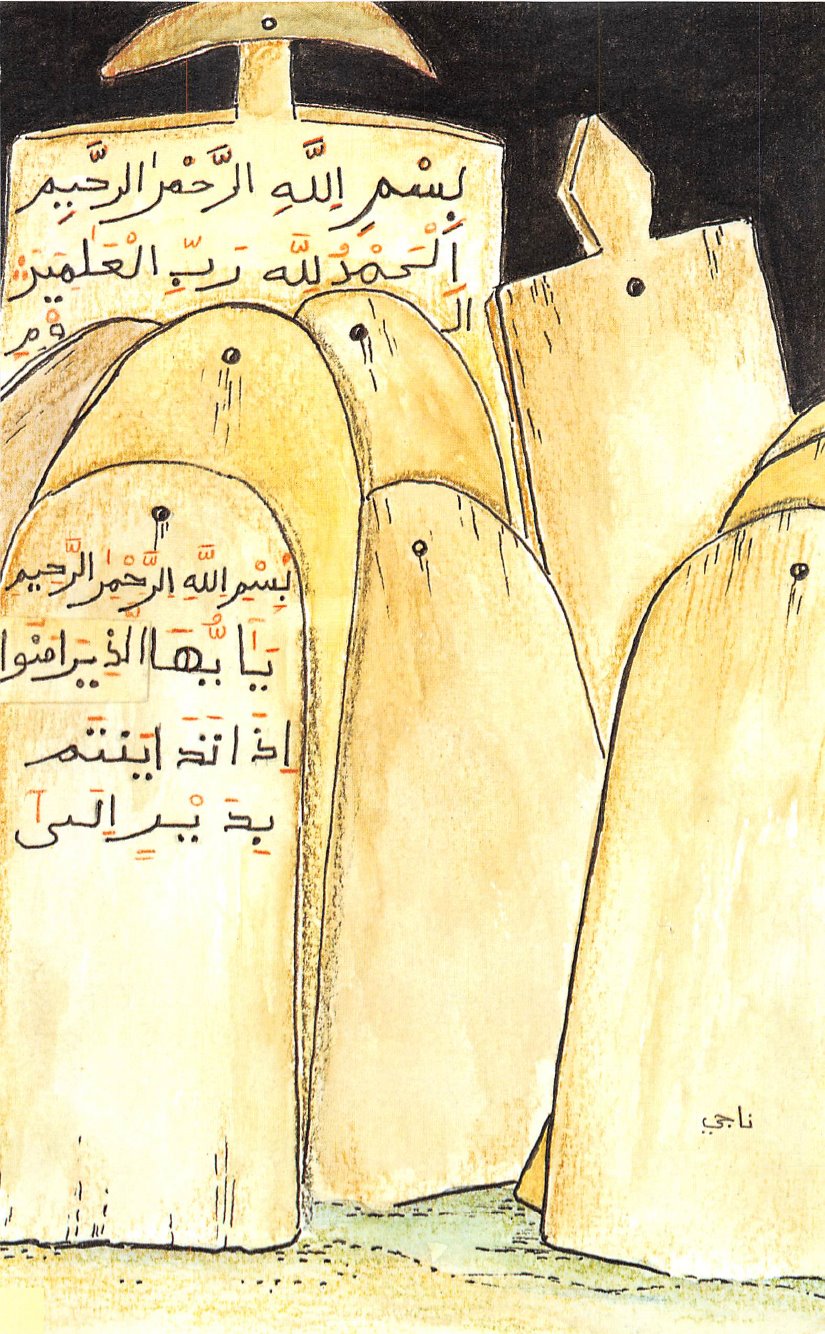 بِسْمِ اللَّهِ الرَّحْمٰنِ الرَّحِيمِ
اَلْحَمْدُ لِلَّهِ رَبِّ الْعَٰلَمِينَ
الـ
بِسْمِ اللَّهِ الرَّحْمٰنِ الرَّحِيمِ
يَـٰٓأَيُّهَا الَّذِينَ امَنُوا
إِذَا تَدَايَنتُم
بِدَيْنٍ إِلَىٰٓ
ناجي